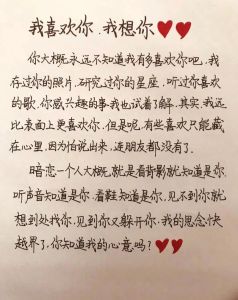 我喜欢你，我想你
你大概永远不知道我有多喜欢你吧，我
存过你的照片，研究过你的星座，听过你喜欢
的歌，你感兴趣的事我也试着了解，其实，我远
比表面上更喜欢你，但是呢，有些喜欢只能藏
在心里，因为怕说出来，连朋友都没有了。
暗恋一个人大概，就是看背影就知道是你，
听声音知道是你，看鞋知道是你，见不到你就
想到处找你，见到你又躲开你，我的思念快
越界了，你知道我的心意吗？